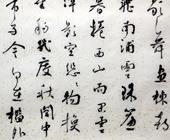 歌舞畫棟朝
飛南浦雲珠簾
暮捲西山雨閒雲
潭影悠悠物換
星移幾度秋閣中
帝子今何在檻外